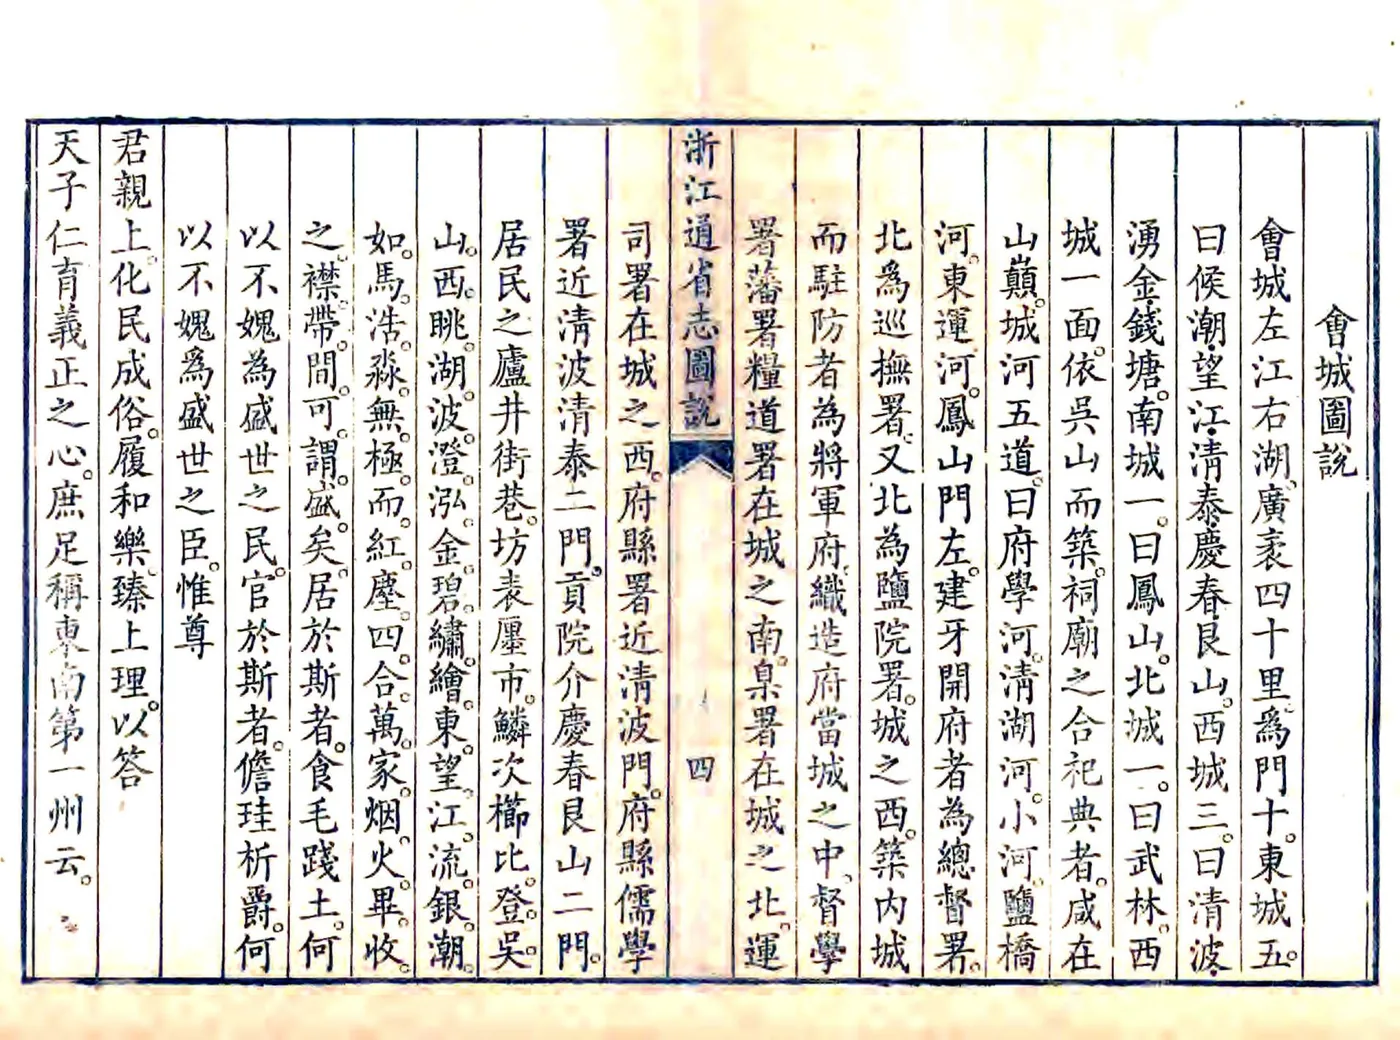 會城圖說
會城左江右湖。廣袤四十里。爲門十。東城五。
曰候潮、望江、清泰、慶春、艮山。西城三。曰清波、
湧金、錢塘。南城一。曰鳳山。北城一。曰武林。西
城一面。依吳山而築。祠廟之合祀典者。咸在
山巔。城河五道。曰府學河。清湖河。小河。鹽橋
河。東運河。鳳山門左。建牙開府者為總督署。
北爲巡撫署。又北為鹽院署。城之西。築内城
而駐防者為將軍府。織造府當城之中。督學
署藩署糧道署在城之南。臬署在城之北。運
浙江通省志圖說
四
司署在城之西。府縣署近清波門。府縣儒學
署近清波清泰二門。貢院介慶春艮山二門。
居民之廬井街巷。坊表廛市。鱗次櫛比。登。吳。
山。西。眺。湖。波。澄。泓。金。碧。繡。繪。東。望。江。流。銀。潮。
如。馬。浩。淼。無。極。而。紅。塵。四。合。萬。家。烟。火。畢。收。
之。襟。帶。間。可。謂。盛。矣。居於斯者。食毛踐土。何
以不媿為盛世之民。官於斯者。儋珪析爵。何
以不媿爲盛世之臣。惟尊
君親上。化民成俗。履和樂。臻上理。以答
天子仁育義正之心。庶足稱東南第一州云。